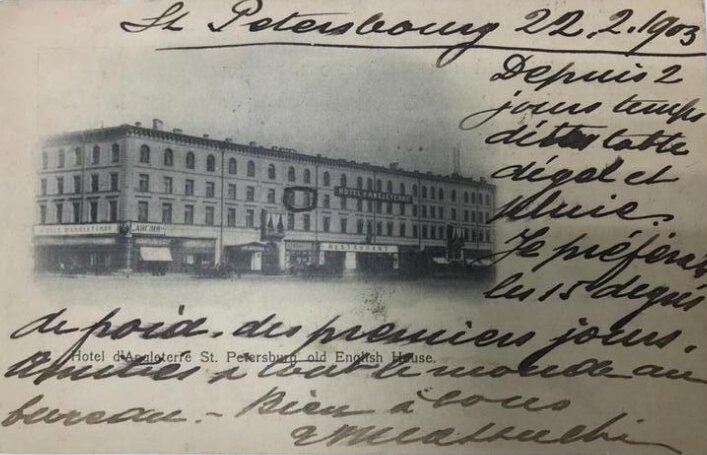 St Petersbourg 22.2.1903
Depuis 2
jours temps
détestable
dégel et
pluie.
Je préférais
les 15 degrés
de froid. des premiers jours.
Amitiés à tout le monde au
bureau. - Bien à vous
HOTEL D'ANGLETERRE
HOTEL D'ANGLETERRE
RESTAURANT
Hotel d'Angleterre St. Petersburg old English House.